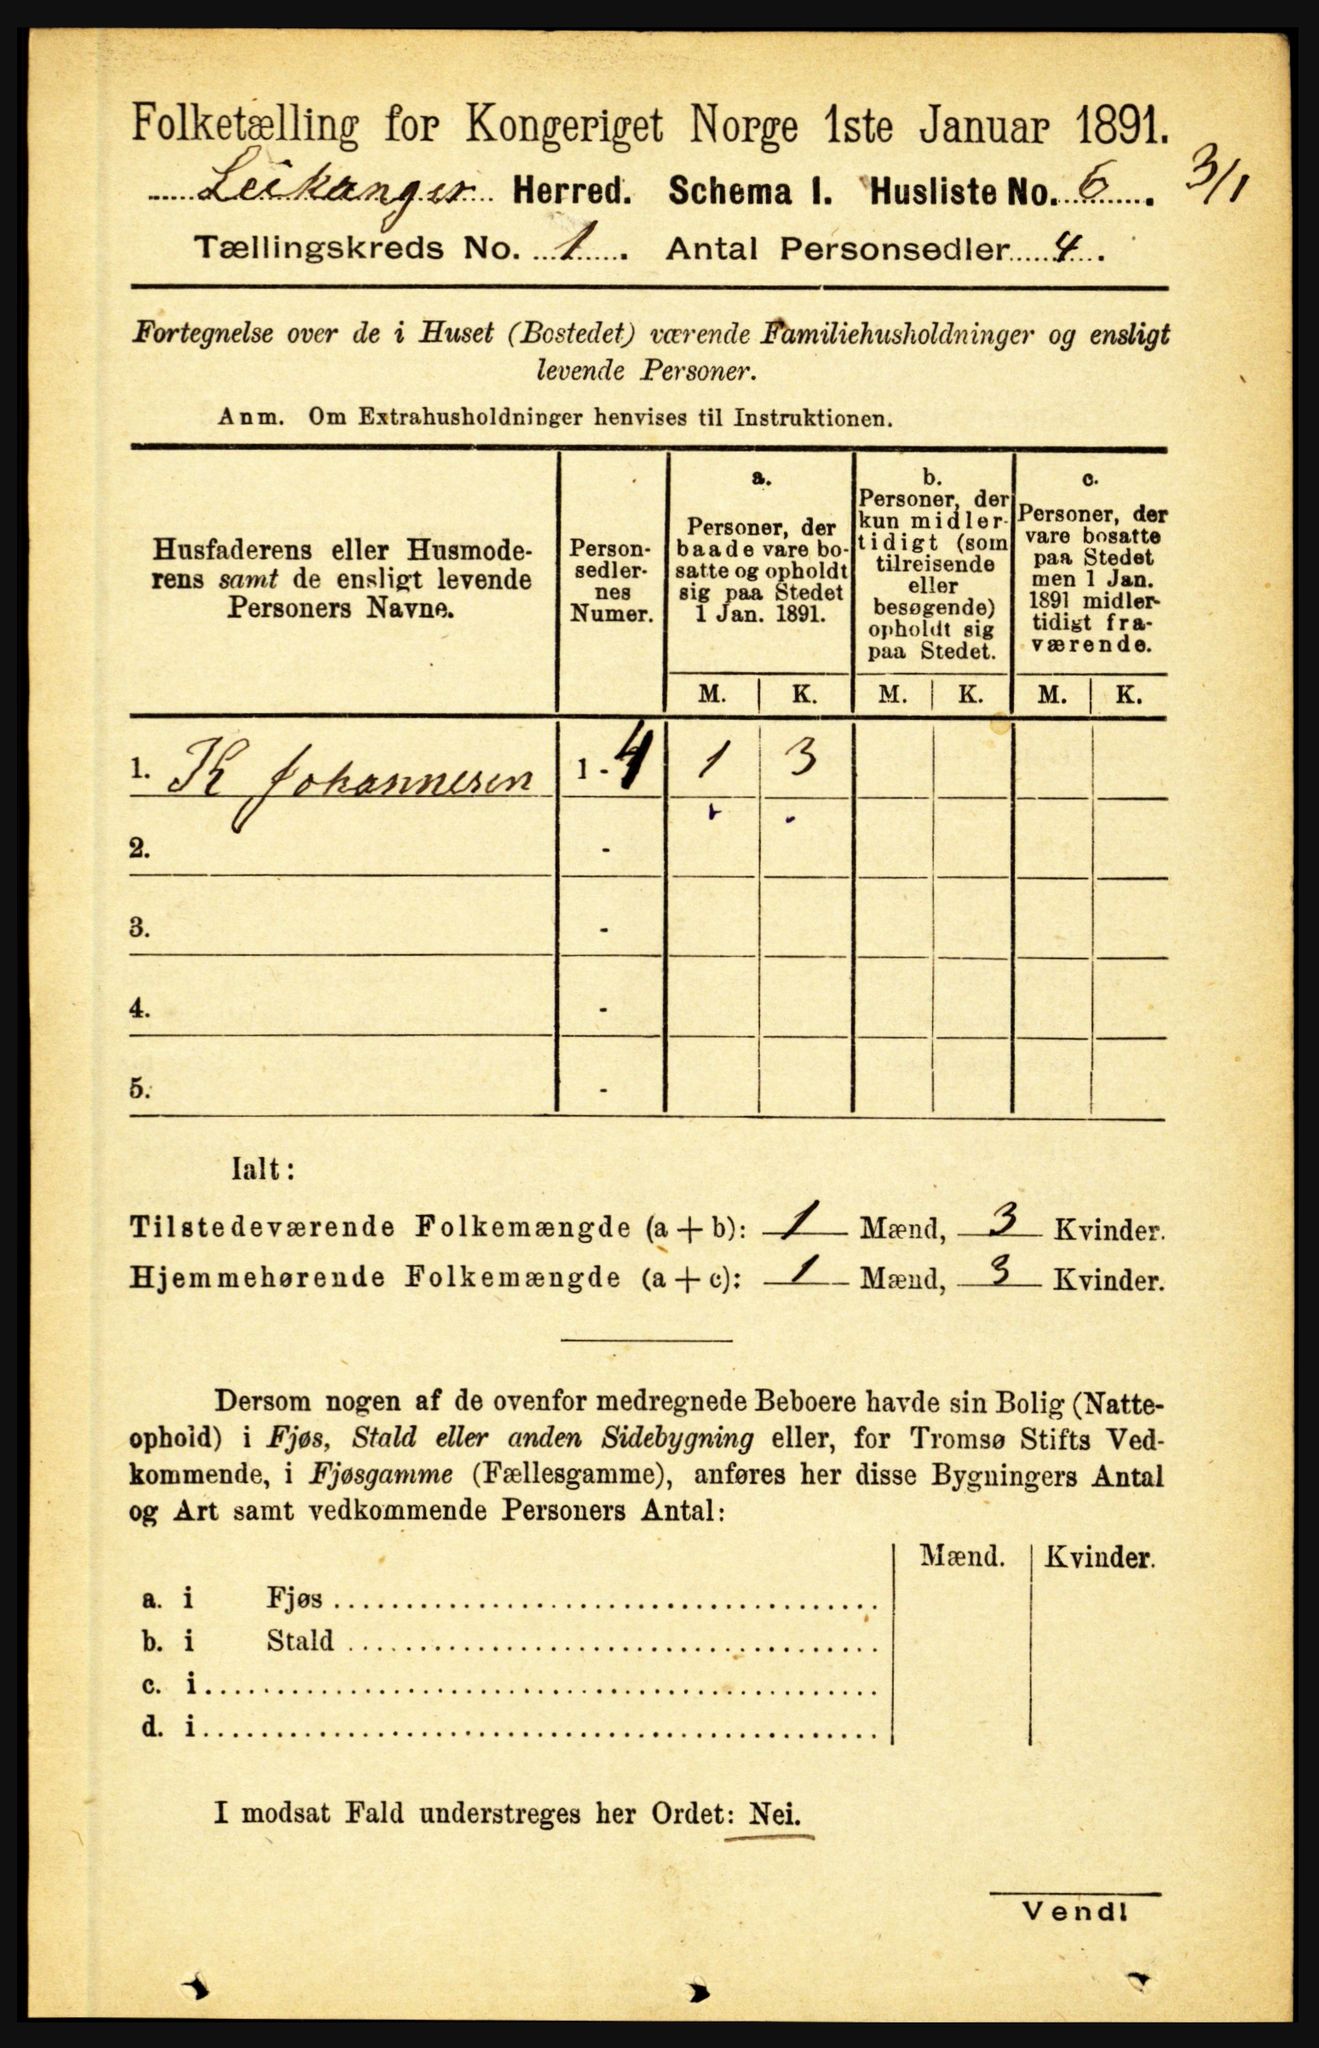 Folketælling for Kongeriget Norge 1ste Januar 1891.
Leikanger Herred. Schema I. Husliste No. 6. 3/1
Tællingskreds No. 1. Antal Personsedler 4.
Fortegnelse over de i Huset (Bostedet) værende Familiehusholdninger og ensligt
levende Personer.
Anm. Om Extrahusholdninger henvises til Instruktionen.
Husfaderens eller Husmode-
rens samt de ensligt levende
Personers Navne.
Person-
sedler-
nes
Numer.
a.
Personer, der
baade vare bo-
satte og opholdt
sig paa Stedet
1 Jan. 1891.
b.
Personer, der
kun midler-
tidigt (som
tilreisende
eller
besøgende)
opholdt sig
paa Stedet.
c.
Personer, der
vare bosatte
paa Stedet
men 1 Jan.
1891 midler-
tidigt fra-
værende.
M. K. M. K. M. K.
1. K Johannesen 1 - 4 1 3
2. -
3. -
4. -
5. -
Ialt:
Tilstedeværende Folkemængde (a + b): 1 Mænd, 3 Kvinder.
Hjemmehørende Folkemængde (a + c): 1 Mænd, 3 Kvinder.
Dersom nogen af de ovenfor medregnede Beboere havde sin Bolig (Natte-
ophold) i Fjøs, Stald eller anden Sidebygning eller, for Tromsø Stifts Ved-
kommende, i Fjøsgamme (Fællesgamme), anføres her disse Bygningers Antal
og Art samt vedkommende Personers Antal:
Mænd. Kvinder.
a. i Fjøs
b. i Stald
c. i
d. i
I modsat Fald understreges her Ordet: Nei.
Vend!